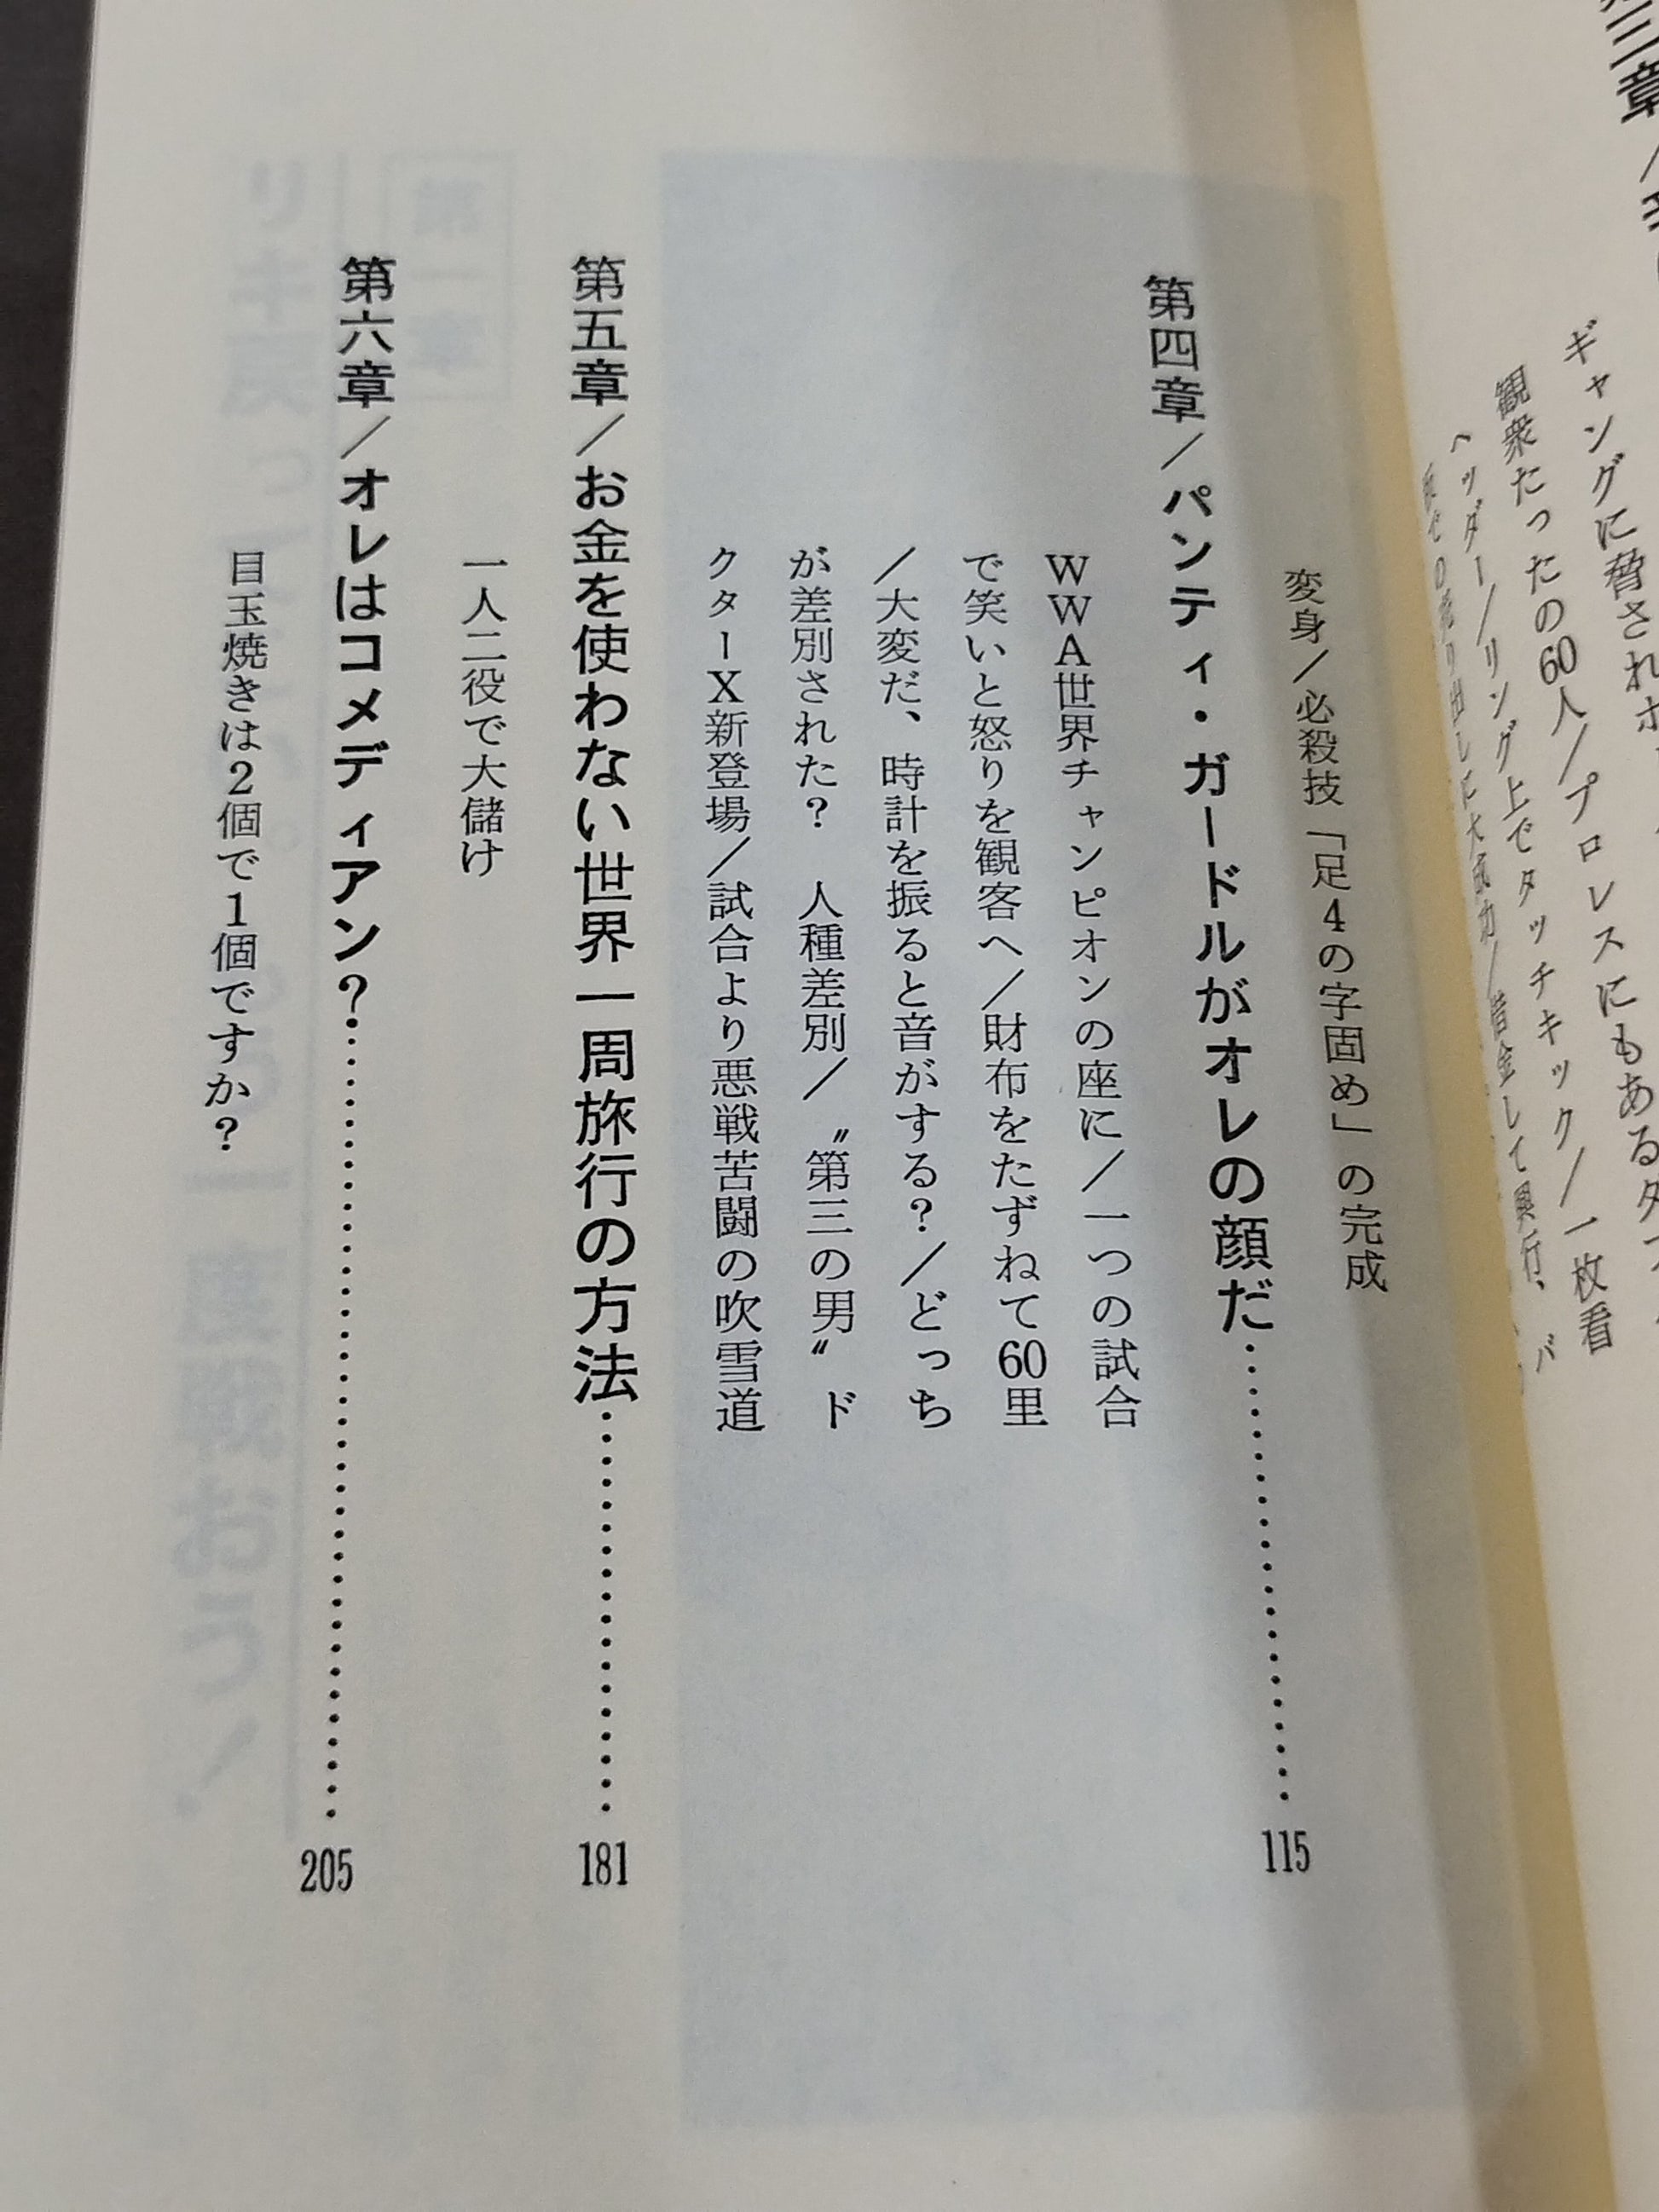 ギャングに脅され
観衆たったの60人/プロレスにもある
ヘッダー/リング上でタッチキック/一枚看
変身/必殺技「足4の字固め」の完成
第四章/パンティ・ガードルがオレの顔だ……………………115
WWA世界チャンピオンの座に/一つの試合
で笑いと怒りを観客へ/財布をたずねて60里
/大変だ、時計を振ると音がする?/どっち
が差別された? 人種差別/〝第三の男〟ド
クターX新登場/試合より悪戦苦闘の吹雪道
第五章/お金を使わない世界一周旅行の方法……………………181
一人二役で大儲け
第六章/オレはコメディアン?……………………205
目玉焼きは2個で1個ですか?